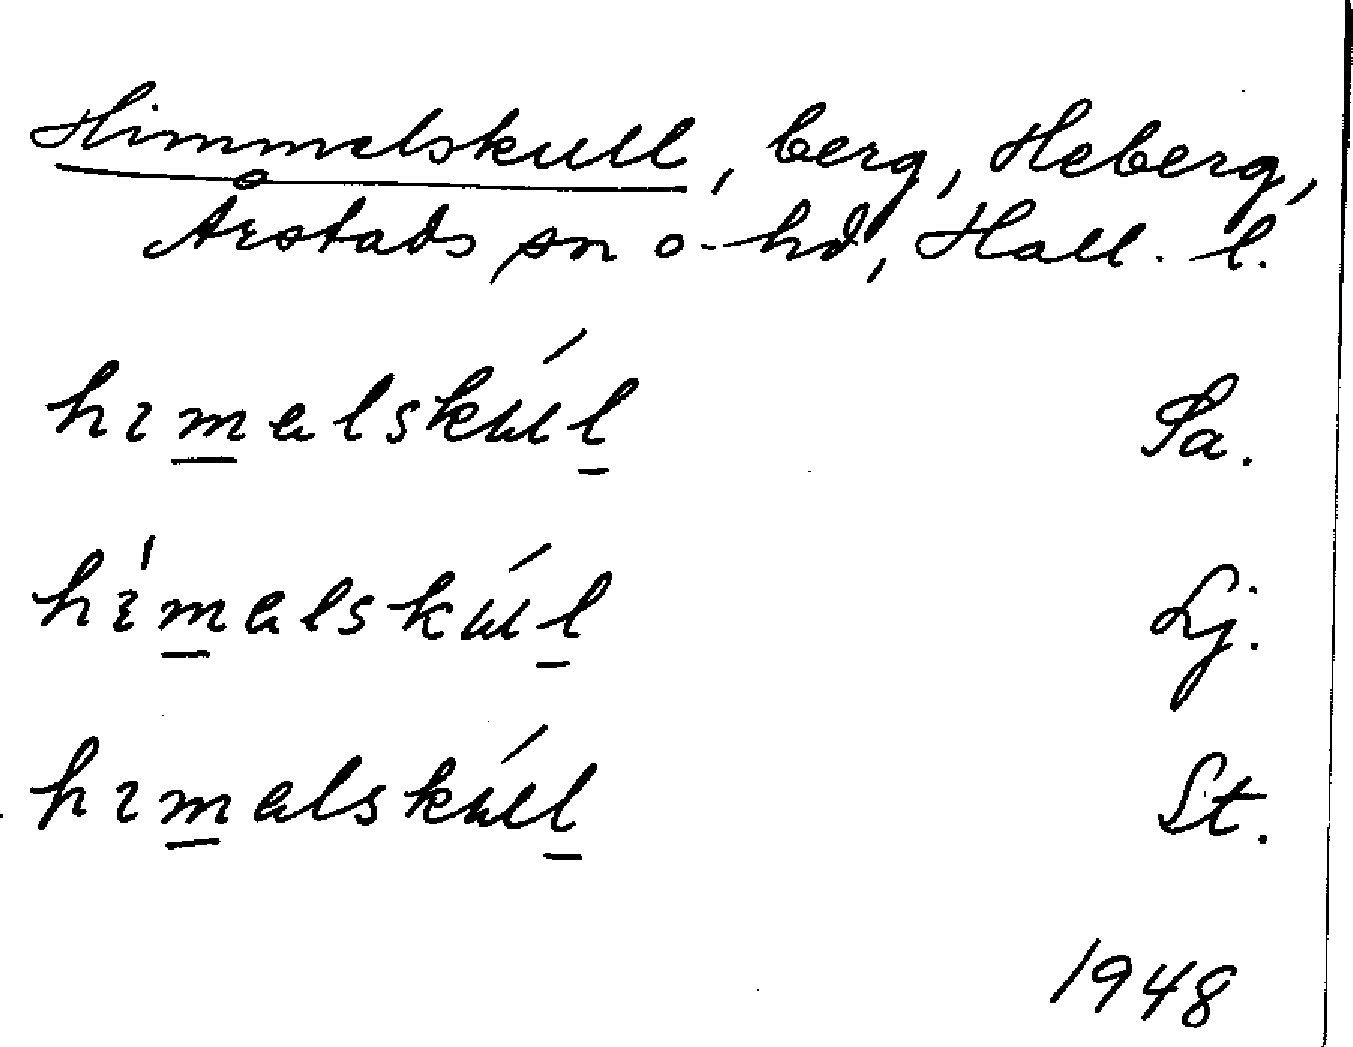 Himmelskull, berg, Heberg,
Årstads sn o. hd, Hall. l.
hımalskúl Sa.
hı́malskúl Lj.
hımalskúl St.
1948